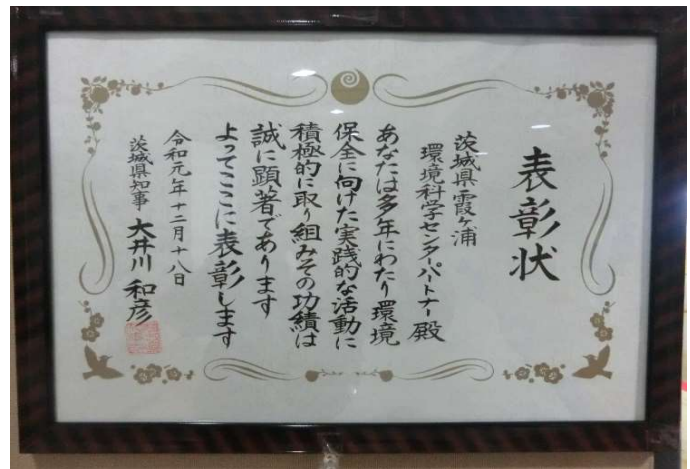 表彰状
茨城県霞ケ浦
環境科学センターパートナー 殿
あなたは多年にわたり環境
保全に向けた実践的な活動に
積極的に取り組みその功績は
誠に顕著であります
よってここに表彰します
令和元年十二月十八日
茨城県知事 大井川 和彦